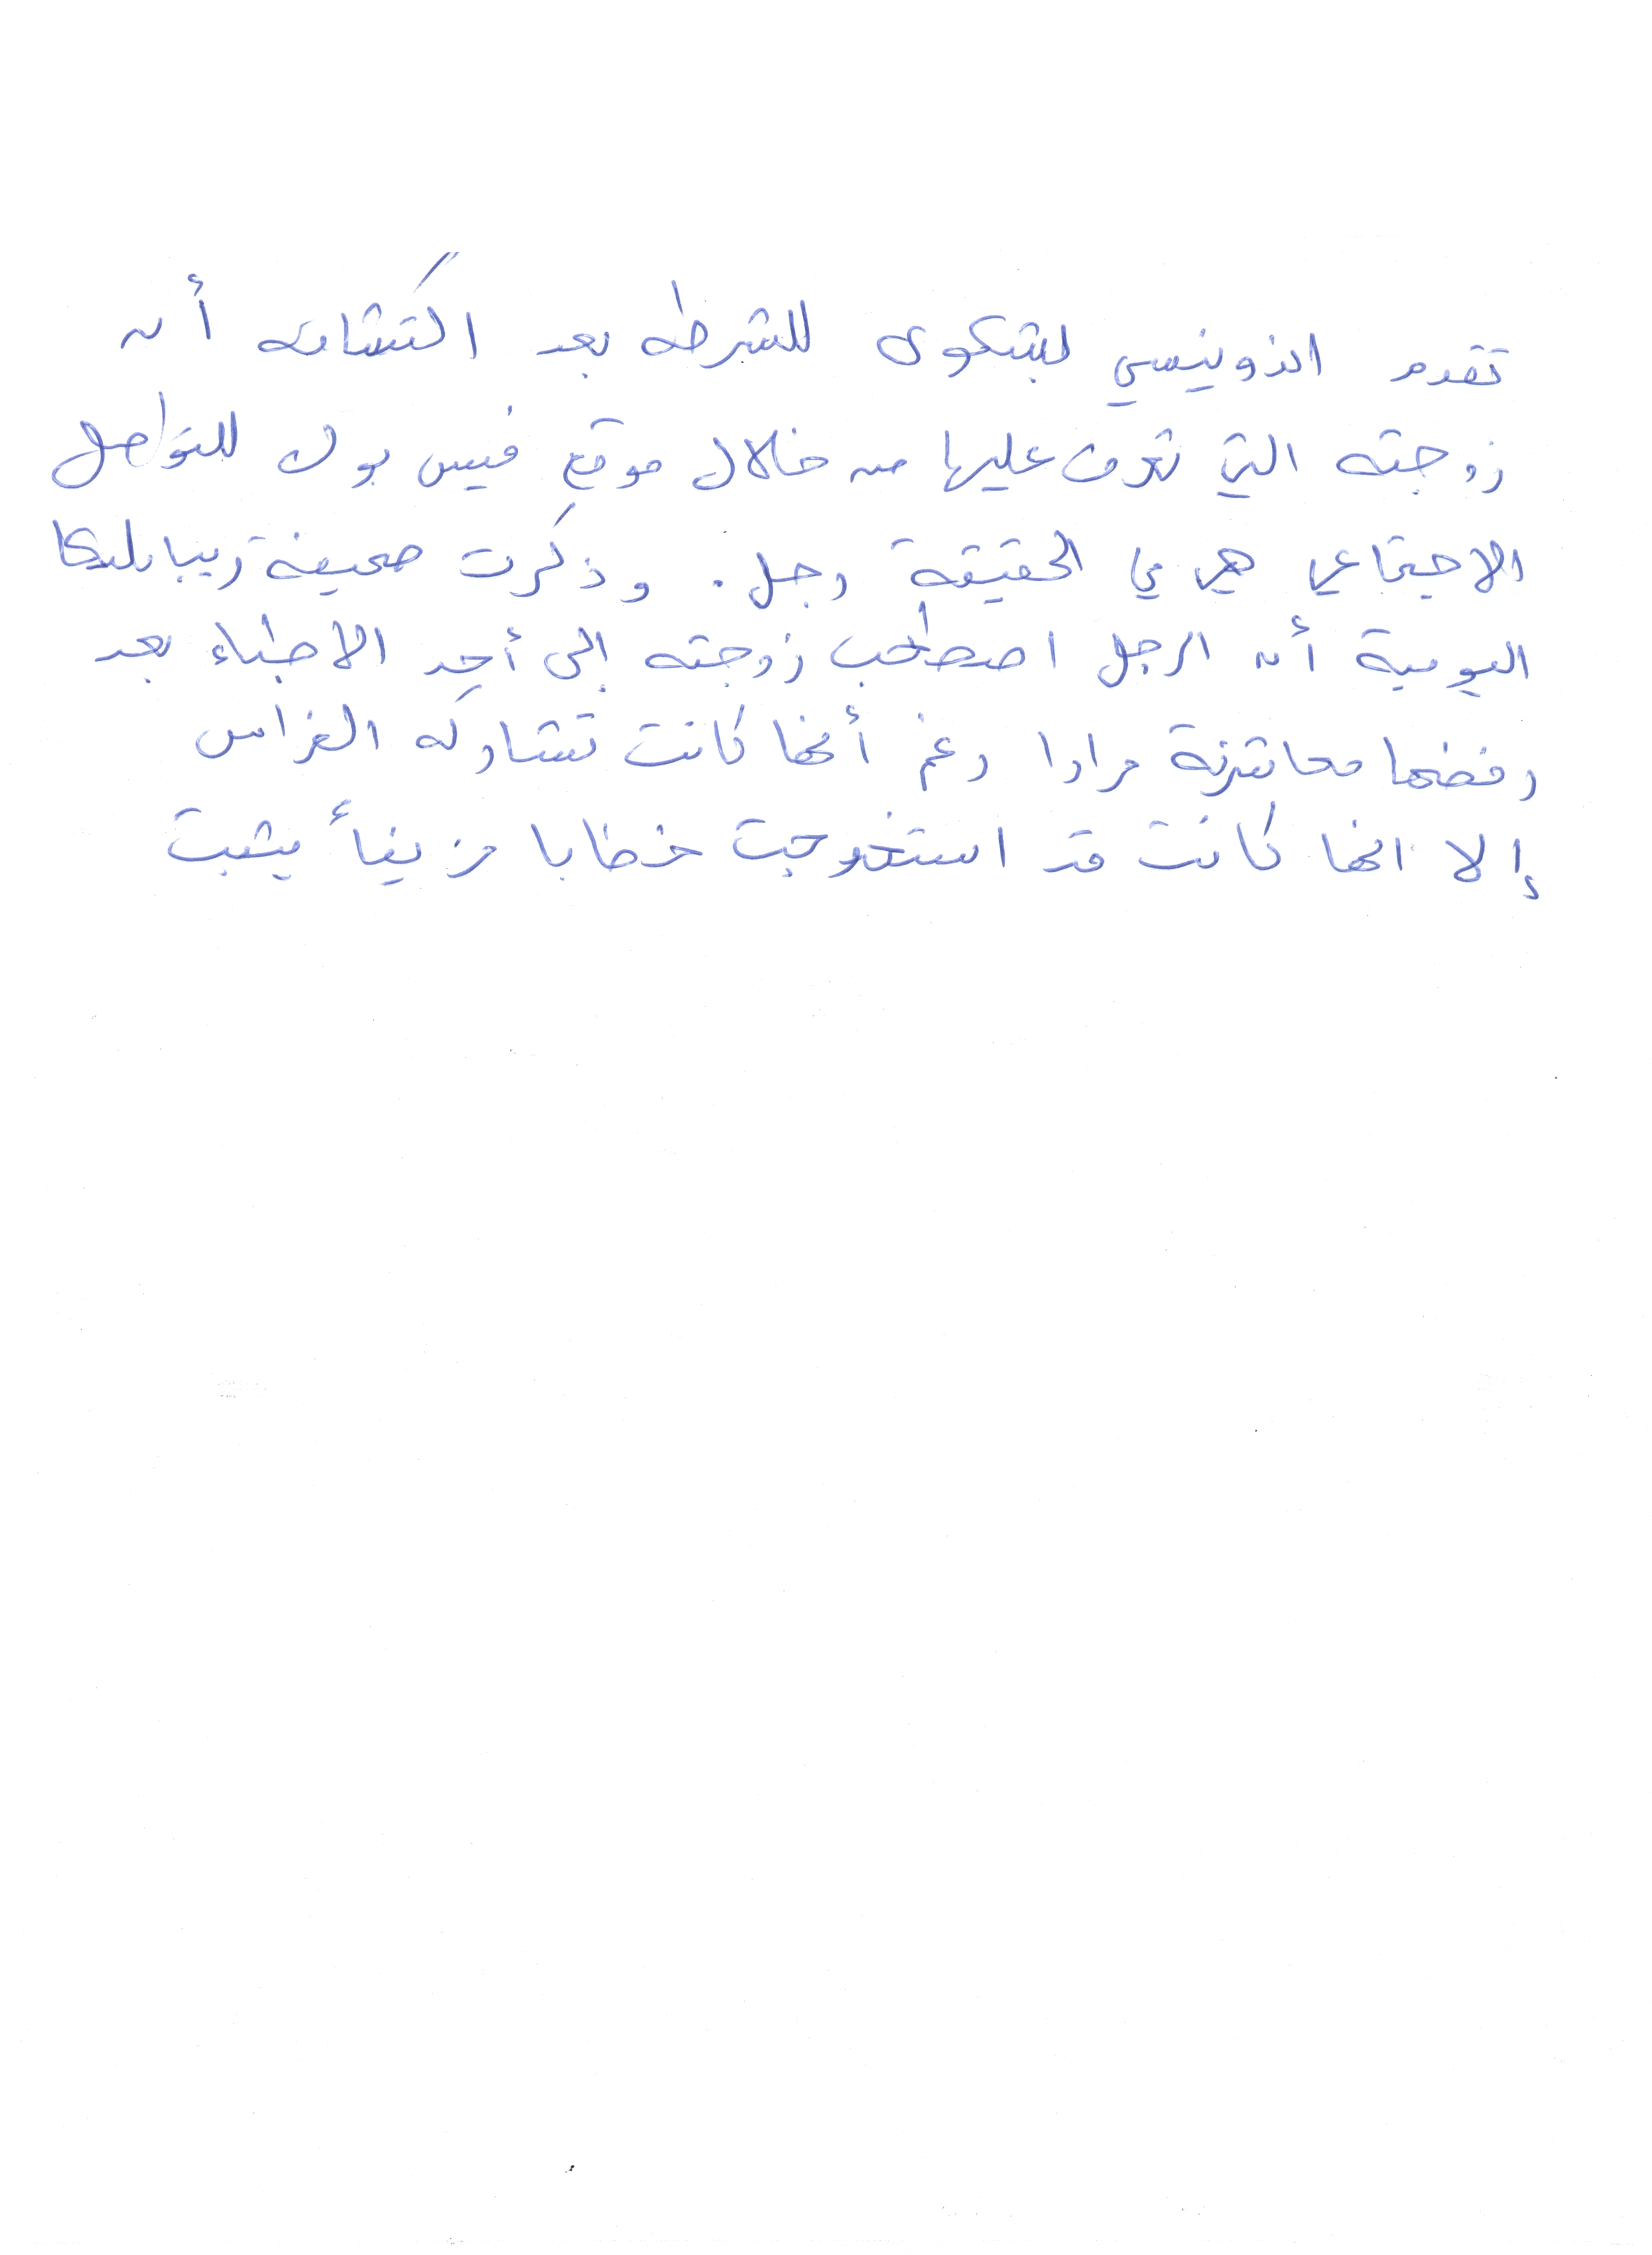 تقدم اندونيسي بشكوى للشرطه بعد اكتشافه أن
زوجته التي تعرف عليها من خلال موقع فيس بوك للتواصل
الاجتماعي هي في الحقيقة رجل. وذكرت صحيفة ريبابليكا
اليومية أن الرجل اصطحب زوجته إلى أحد الاطباء بعد
رفضها معاشرته مرارا رغم أنها كانت تشاركه الفراش
إلا انها كانت قد استخرجت خطابا مزيفاً يثبت